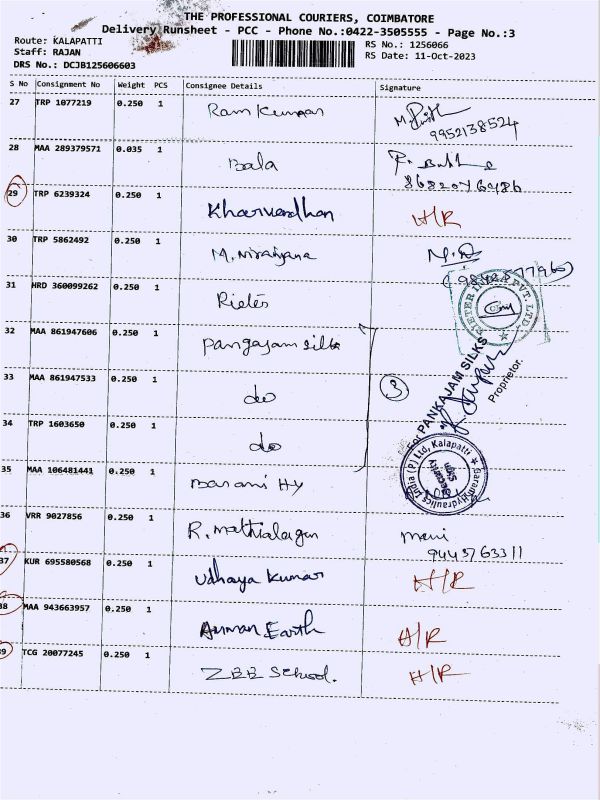 THE PROFESSIONAL COURIERS, COIMBATORE
Delivery Runsheet - PCC - Phone No.:0422-3505555 - Page No.:3
Route: KALAPATTI
Staff: RAJAN
RS No.: 1256066
RS Date: 11-Oct-2023
DRS No.: DCJB125606603
S No Consignment No Weight PCS Consignee Details Signature
27 TRP 1077219 0.250 1 Ram Kumar
9952138524
28 MAA 289379571 0.035 1 Bala
8682076486
29 TRP 6239324 0.250 1 Kharvardhan H/R
30 TRP 5862492 0.250 1 M. Niranjana
31 HRD 360099262 0.250 1 Rieter
RIETER PVT. LTD.
32 MAA 861947606 0.250 1 Pangajam silk
33 MAA 861947533 0.250 1 do
3
34 TRP 1603650 0.250 1 do
For PANKAJAM SILKS
Proprietor.
35 MAA 106481441 0.250 1 Barani Hy
Hydraulics India (P) Ltd, Kalapatti
Security Sign
36 VRR 9027856 0.250 1 R. Mathialagan Mani
9443763311
37 KUR 695580568 0.250 1 Udhaya Kumar H/R
38 MAA 943663957 0.250 1 Earth H/R
39 TCG 20077245 0.250 1 ZBB School. H/R